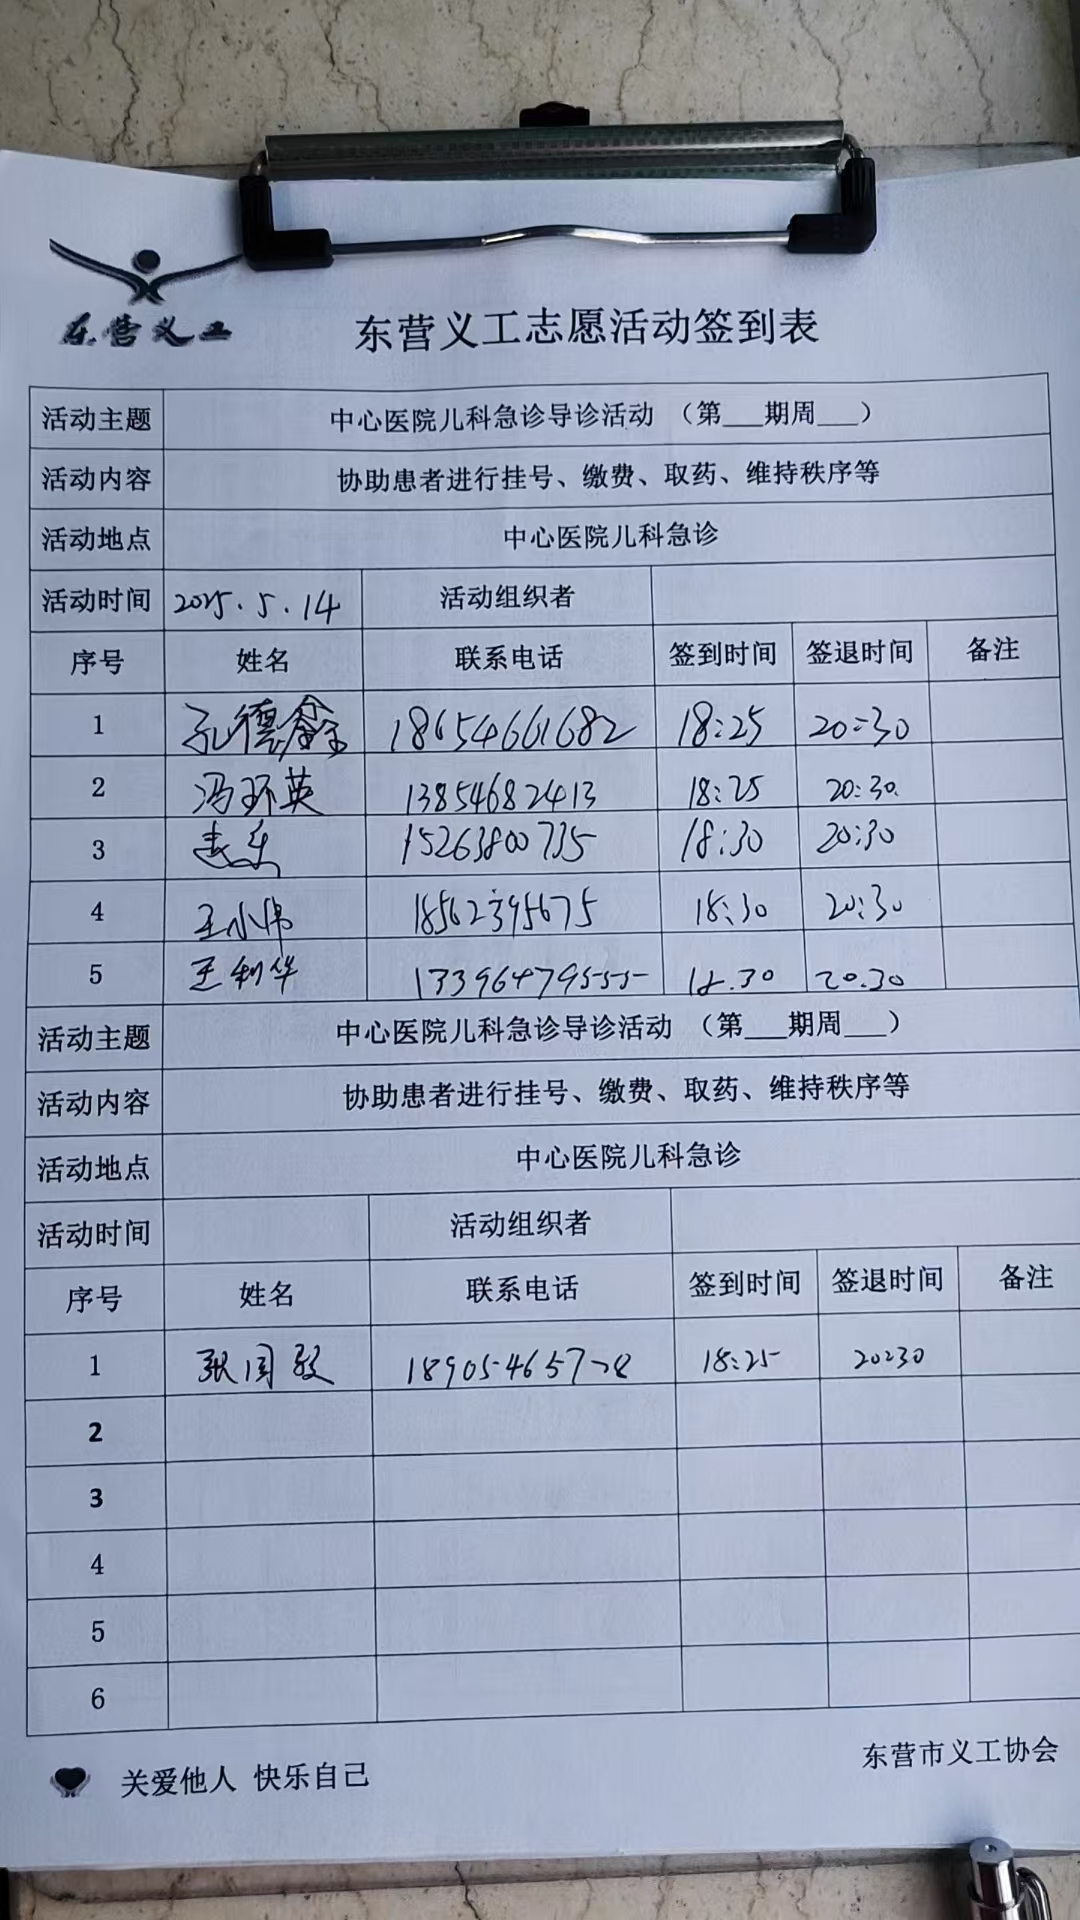 东营义工
东营义工志愿活动签到表
活动主题 中心医院儿科急诊导诊活动 （第___期周___）
活动内容 协助患者进行挂号、缴费、取药、维持秩序等
活动地点 中心医院儿科急诊
活动时间 2025.5.14 活动组织者
序号 姓名 联系电话 签到时间 签退时间 备注
1 孔德鑫 18654661682 18:25 20:30
2 冯环英 13854682413 18:25 20:30
3 15263800735 18:30 20:30
4 王小伟 18562395675 18:30 20:30
5 王利华 13396479555 18.30 20.30
活动主题 中心医院儿科急诊导诊活动 （第___期周___）
活动内容 协助患者进行挂号、缴费、取药、维持秩序等
活动地点 中心医院儿科急诊
活动时间 活动组织者
序号 姓名 联系电话 签到时间 签退时间 备注
1 张国毅 18:25 20:30
2
3
4
5
6
关爱他人 快乐自己
东营市义工协会